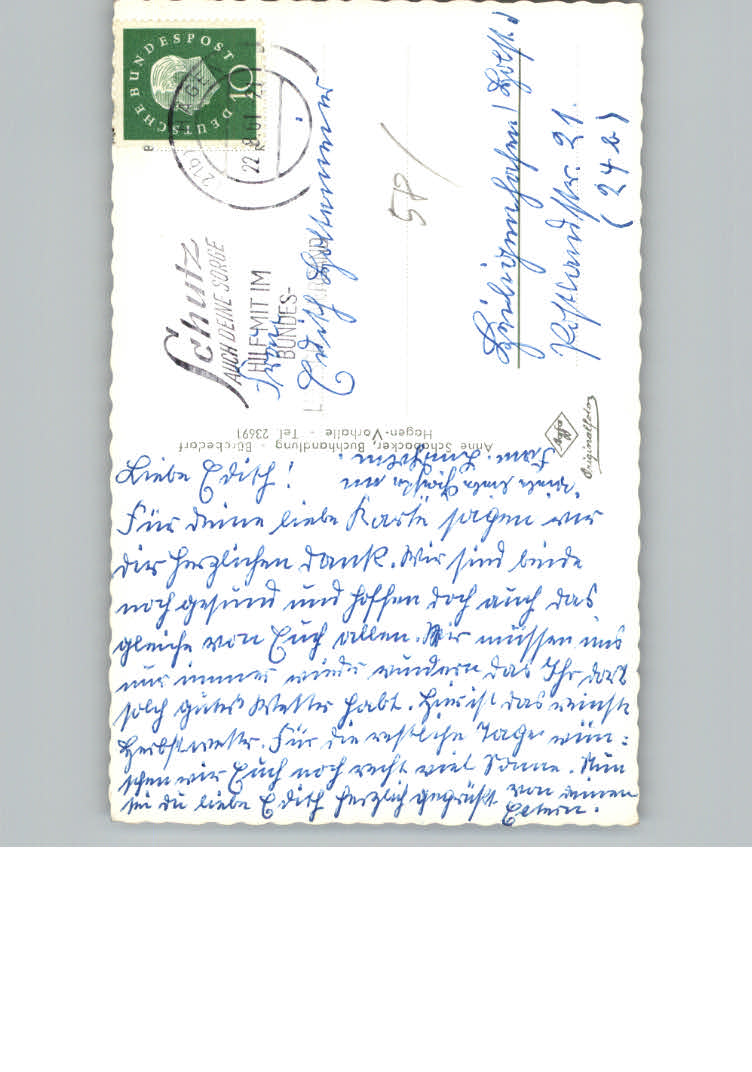 DEUTSCHE BUNDESPOST
10
22.8.61
Schutz
AUCH DEINE SORGE
HILF MIT IM
BUNDES-
Edith
58/
Heiligenhafen/Holst.
21.
(24b)
Anne Schabacker, Buchhandlung - Bürobedarf
Hagen-Vorhalle - Tel. 23691
Agfa
Originalfoto
Liebe Edith!
Für deine liebe Karte sagen wir
dir herzlichen Dank. Wir sind beide
noch gesund und hoffen doch auch das
gleiche von Euch allen. Wir müssen uns
nur immer wieder wundern das Ihr dort
solch gutes Wetter habt. Hier ist das reinste
Herbstwetter. Für die restliche Tage wün-
schen wir Euch noch recht viel Sonne. Nun
sei du liebe Edith herzlich gegrüßt von deinen
Eltern.